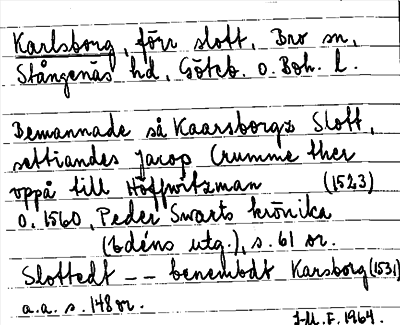 Karlsborg, förr slott, Bro sn,
Stångenäs hd, Göteb. o. Boh. l.
Bemannade så Kaarsborgz Slott,
settiandes Jacop Crumme ther
oppå till Höffwitzman (1523)
o. 1560, Peder Swarts krönika
(Edéns utg.), s. 61 or.
Slottedt -- benembdt Karsborg (1531)
a.a. s. 148 or.
J.M.F. 1964.